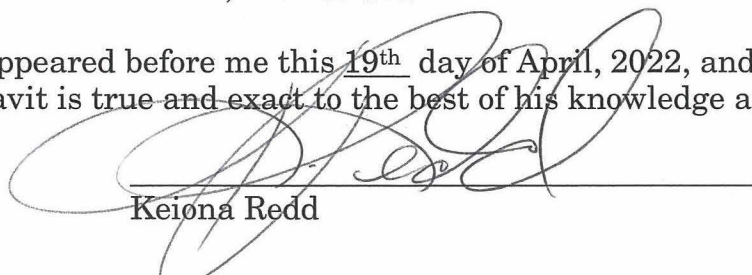 ppeared before me this 19th day of April, 2022, and
avit is true and exact to the best of his knowledge a
Redd
Keiona Redd